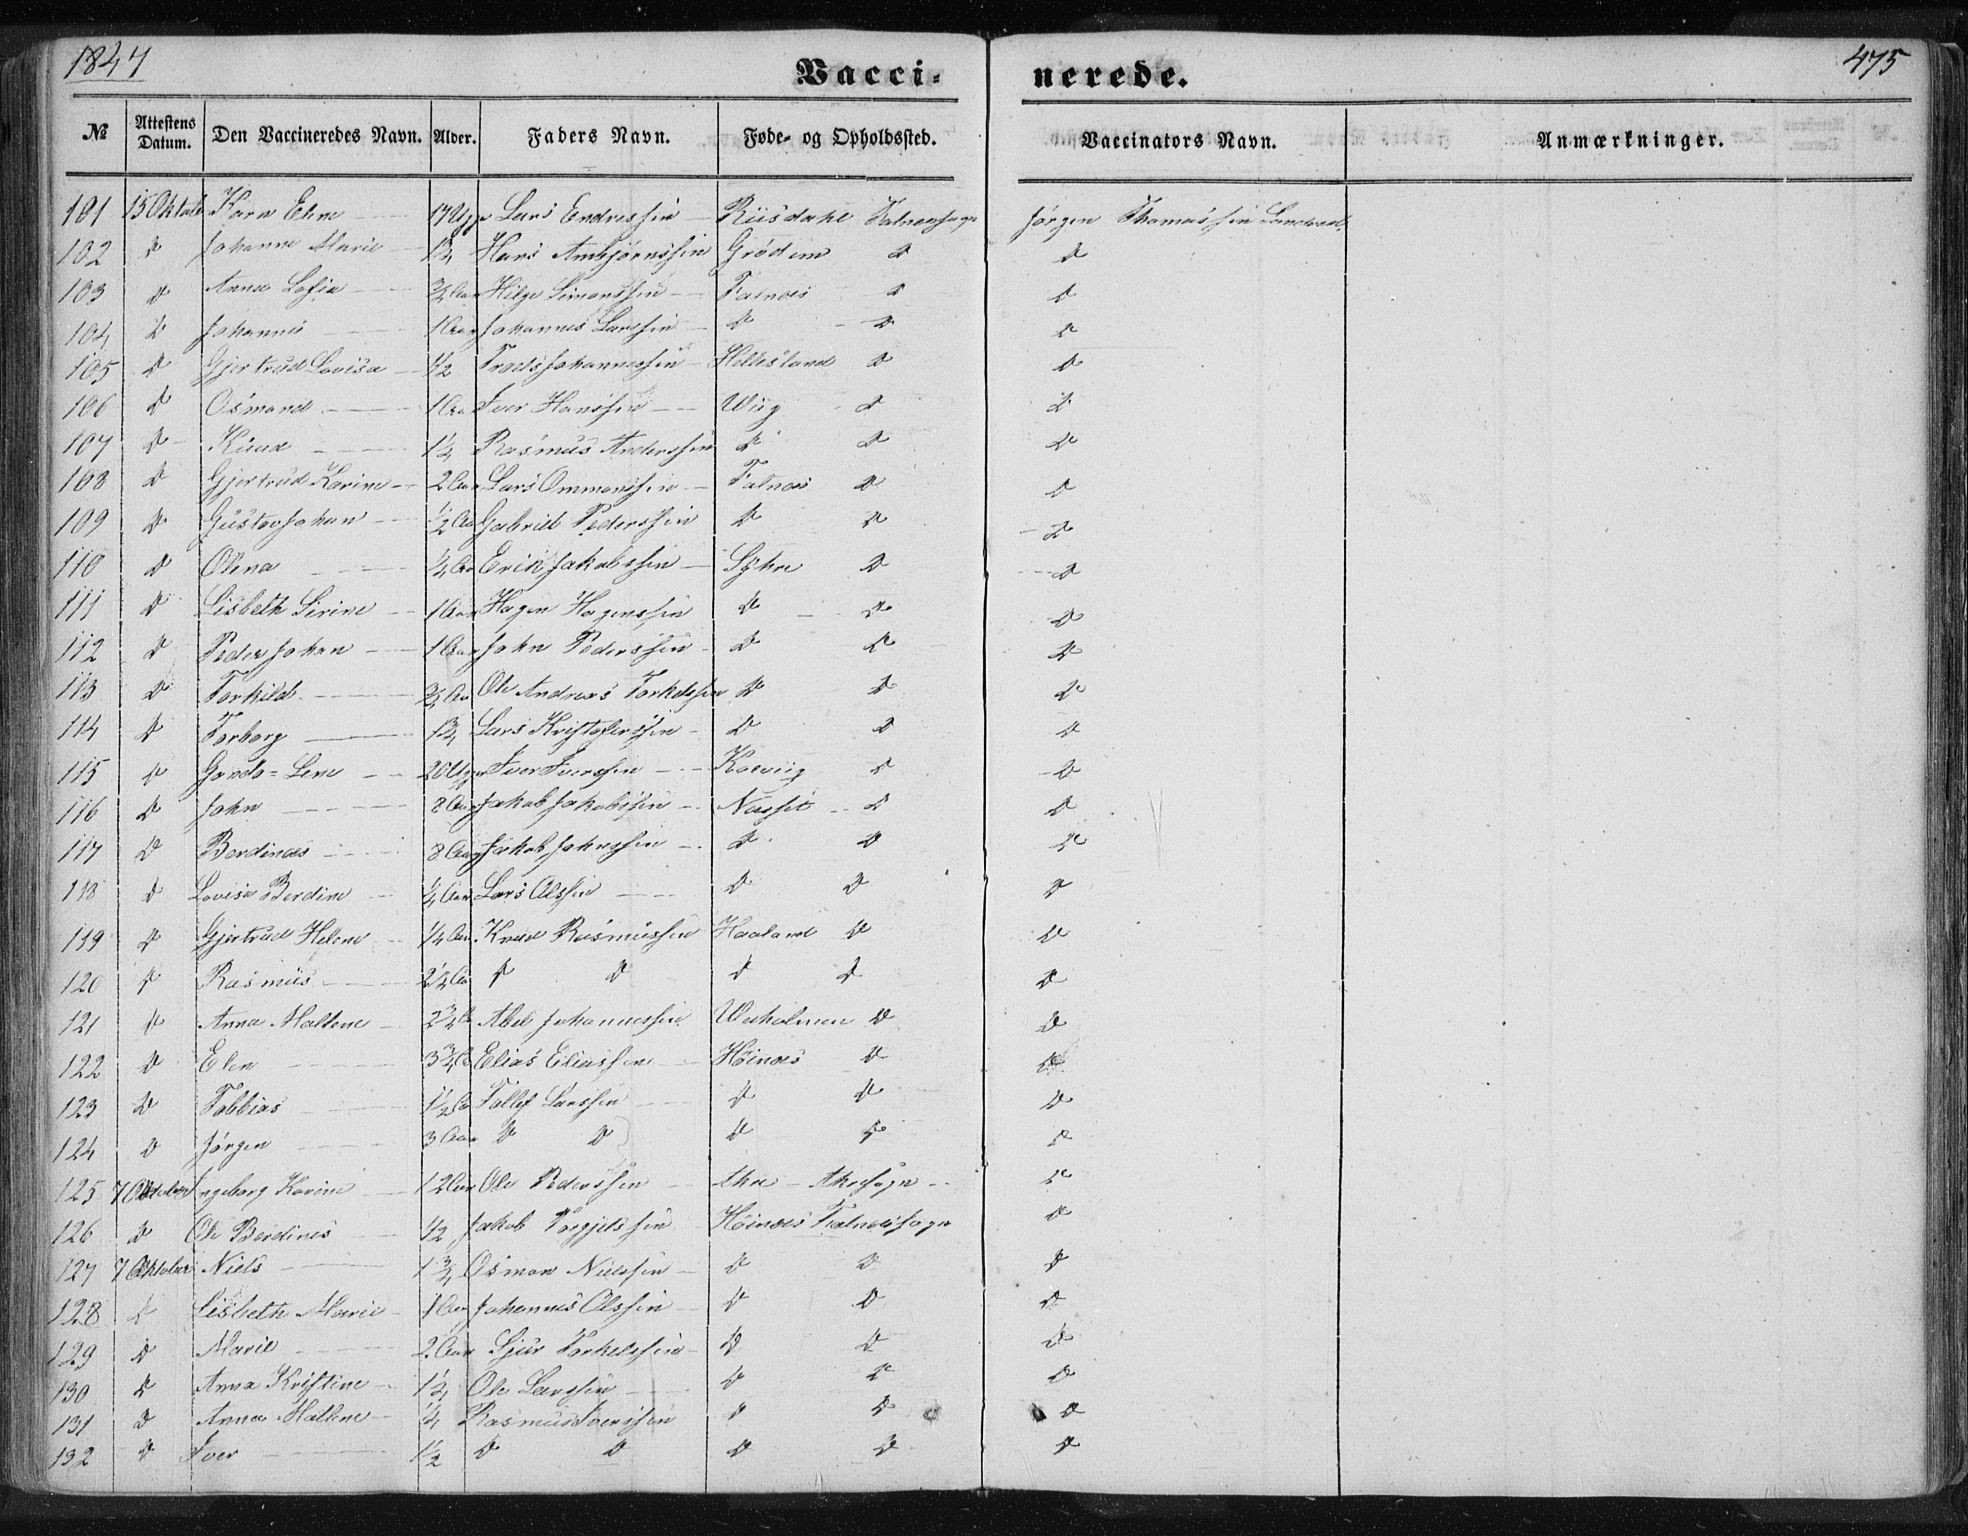 1847
475
Vacci-
nerede.
№ Attestens Datum. Den Vaccineredes Navn. Alder. Faders Navn. Føde- og Opholdssted. Vaccinators Navn. Anmærkninger.
101 15 Oktob Karn Eline 17 Uger Lars Endressen Riisdahl Falnessogn Jørgen Thomassen
102 D Johanne Marie 1¾ Hans Ambjørnssen Grødem D D
103 D Anna Sofia ¾ Aar Hilge Simonssen Falnæs D D
104 D Johannes 1 Aar Johannes Larssen D D D
105 D Gjertrud Lovisa ½ Troels Johannessen Hellesland D D
106 D Osmond 1 Aar Iver Hanssen Wiig D D
107 D Knud 1¼ Rasmus Anderssen D D D
108 D Gjertrud Karine 2 Aar Lars Ommonssen Falnæs D D
109 D Gustav Johan ½ Aar Gabriel Pederssen D D D
110 D Olena ¼ Aar Erik Jakobssen Syhre D D
111 D Lisbeth Sirine 1 Aar Hagen Hagenssen D D D
112 D Peder Johan 1 Aar John Pederssen D D D
113 D Torkild ¾ Aar Ole Andreas Torkelssen D D D
114 D Torborg 1¾ Lars Kristoferssen D D D
115 D Gonda=Lene 20 Uger Iver Iverssen Kolviig D D
116 D John 8 Aar Jakob Jakobssen D D
117 D Berdines 8 Aar Jakob Johnssen D D D
118 D Lovisa Berdine ¼ Aar Lars Olssen D D D
119 D Gjertrud Helene ¼ Aar Knud Rasmussen Haaland D D
120 D Rasmus 2¼ Aar D D D D D
121 D Anna Maltene 2¾ Abel Johannessen D D
122 D Elen 3¾ Elias Eliassen Høinæs D D
123 D Tobbias 1½ Tollef Larssen D D D
124 D Jørgen 3 Aar D D D D D
125 7 Oktober Ingeborg Karine 12 Aar Ole Pederssen D
126 D Ole Berdines ½ Jakob Torgjelssen Høinæs Falnessogn D
127 7 Oktober Niels 1¾ Osmon Nielssen D D D
128 D Lisbeth Marie 1 Aar Johannes Olssen D D D
129 D Marie 2 Aar Sjur Torkelssen D D D
130 D Anna Kristine 1¼ Ole Larssen D D D
131 D Anna Maltene ¼ Rasmus Iverssen D D D
132 D Iver 1½ D D D D D